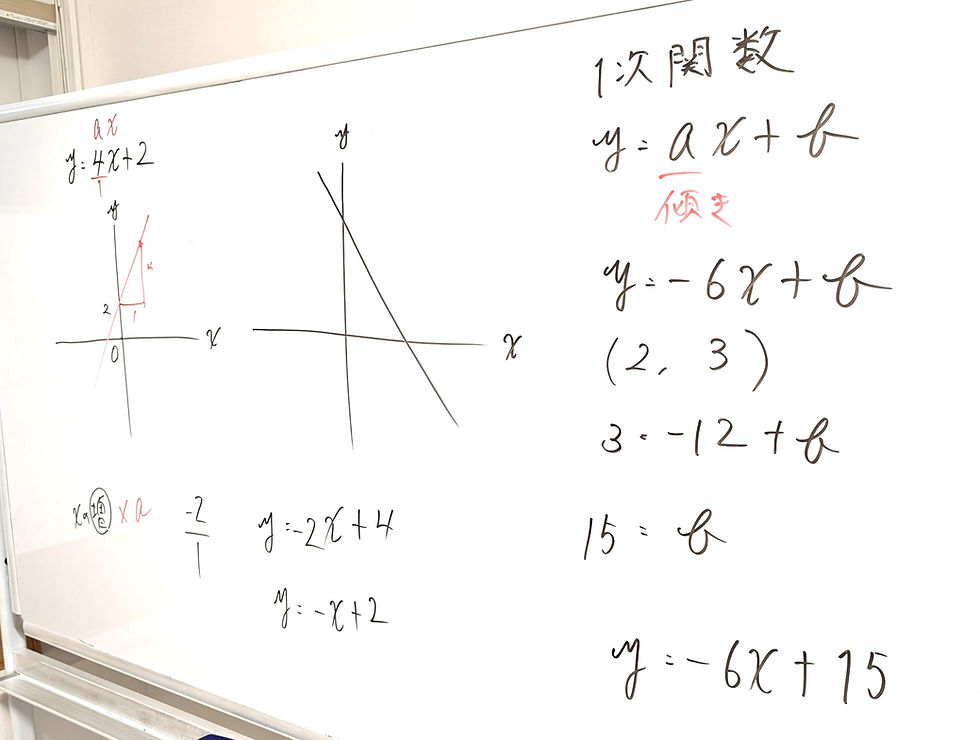 ax
y=4x+2
1
y
4
2
1
x
0
y
x
xの増 xa
-2
1
y=-2x+4
y=-x+2
1次関数
y=ax+b
傾き
y=-6x+b
(2, 3)
3=-12+b
15=b
y=-6x+15